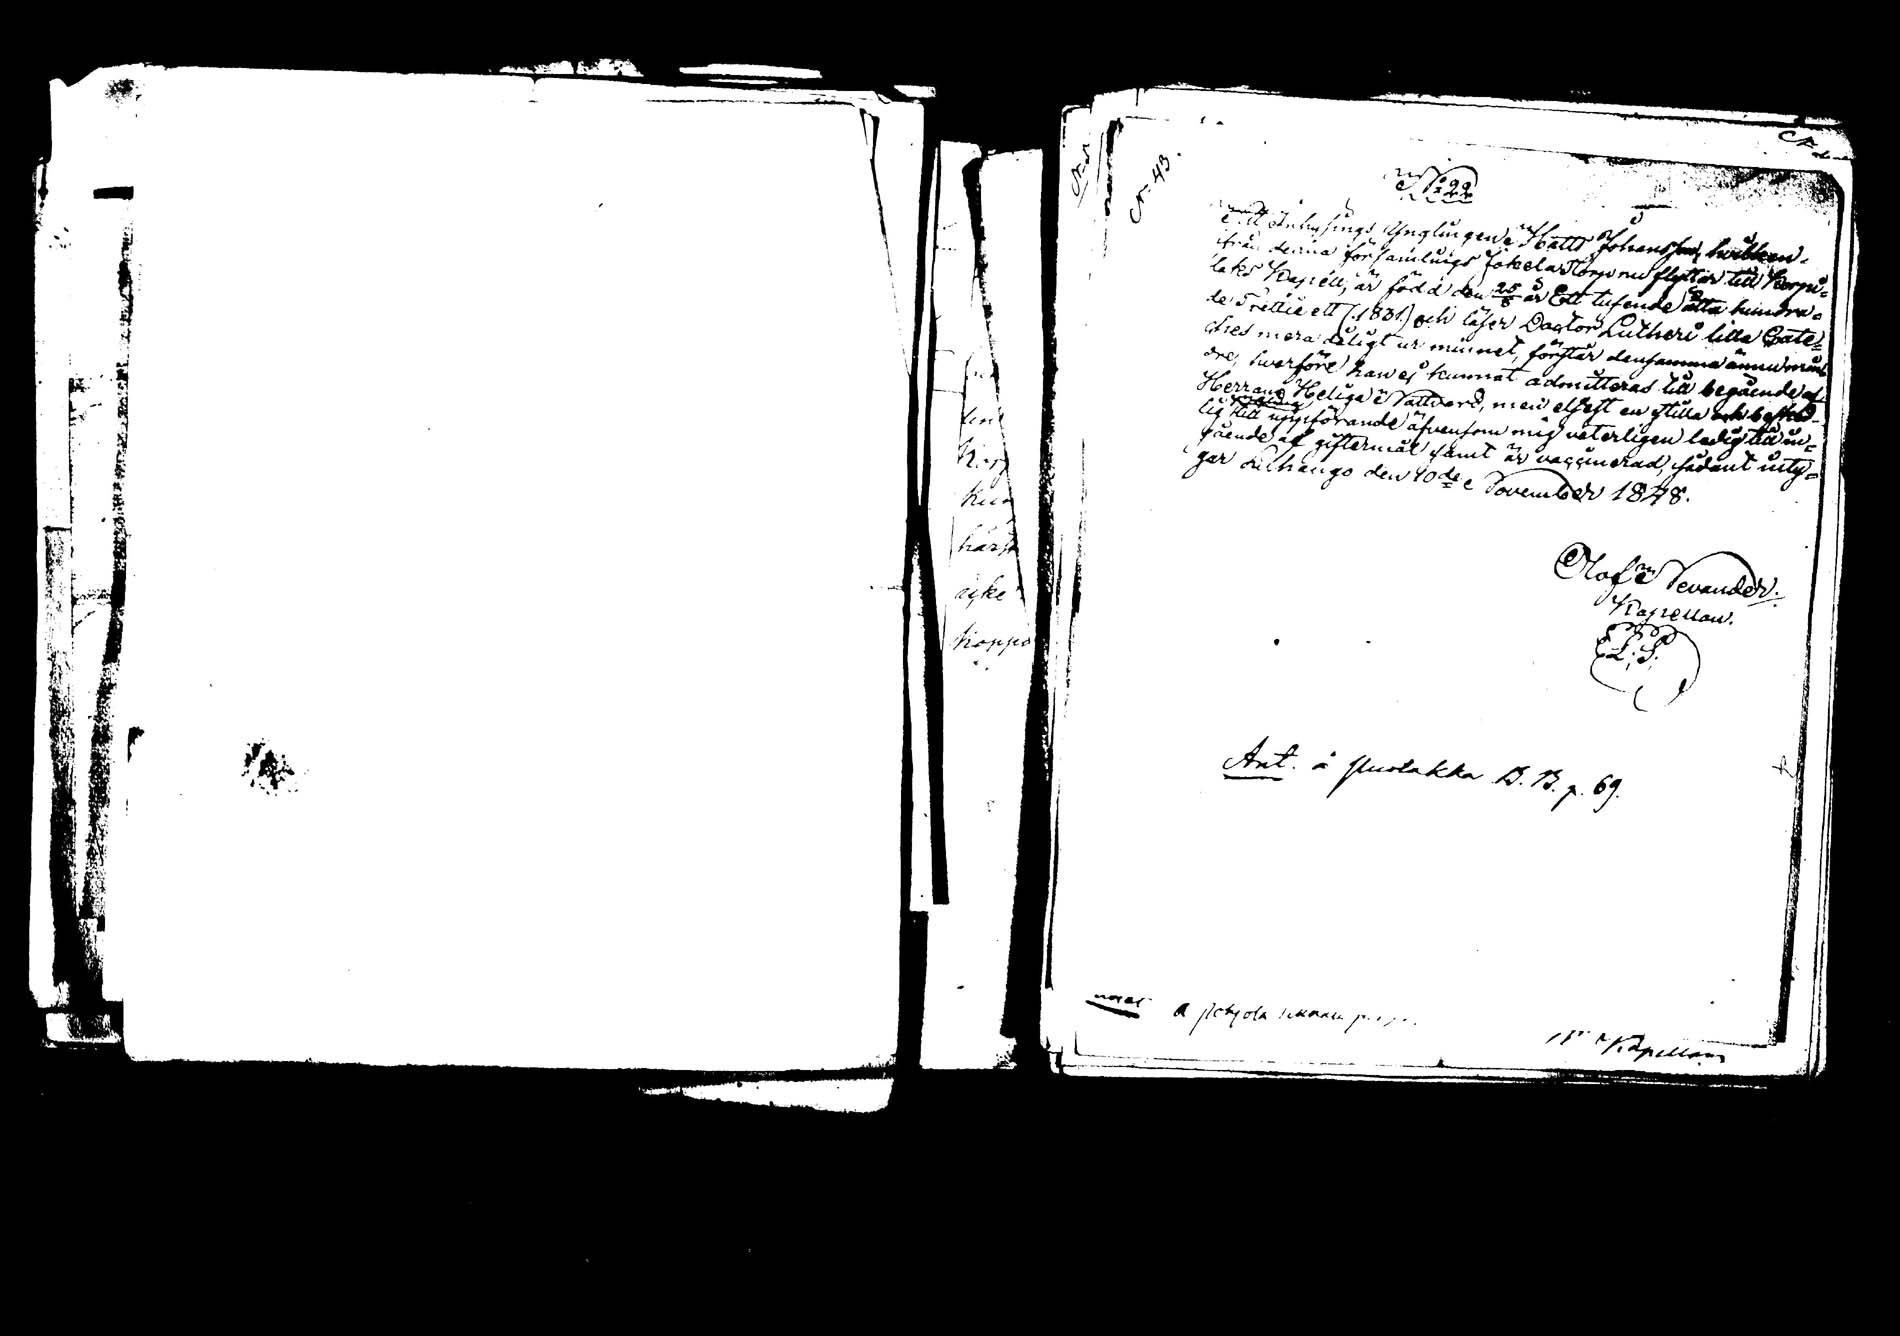 din
Korp
kun
härst
äfke
Koppo
N 43.
N: 22
att Inhysings Ynglingen Matts Johansson, hvilken
från denna församlings Jokela Torp nu flyttar till Korpi-
laks Kapell, är född den 25/8 år Ett tusende åtta hundra-
de Trettie ett (1831.) och läser Doctor Lutheri lilla Cate-
ches mera deligt ur minnet, förstår densamma ännu min-
dre, hvarföre han ej kunnat admitteras till begående af
Herrans Heliga Nattvard, men elljest en stilla och besked-
lig till uppförande äfvensom mig veterligen ledig till in-
gående af giftermål samt är vaccinerad, sådant inty-
gar Luhango den 10de November 1848.
Olof Nevander.
Kapellan.
L. S.
Ant. å Puolakka B. B. p. 69.
a Pohjola
Kapellan